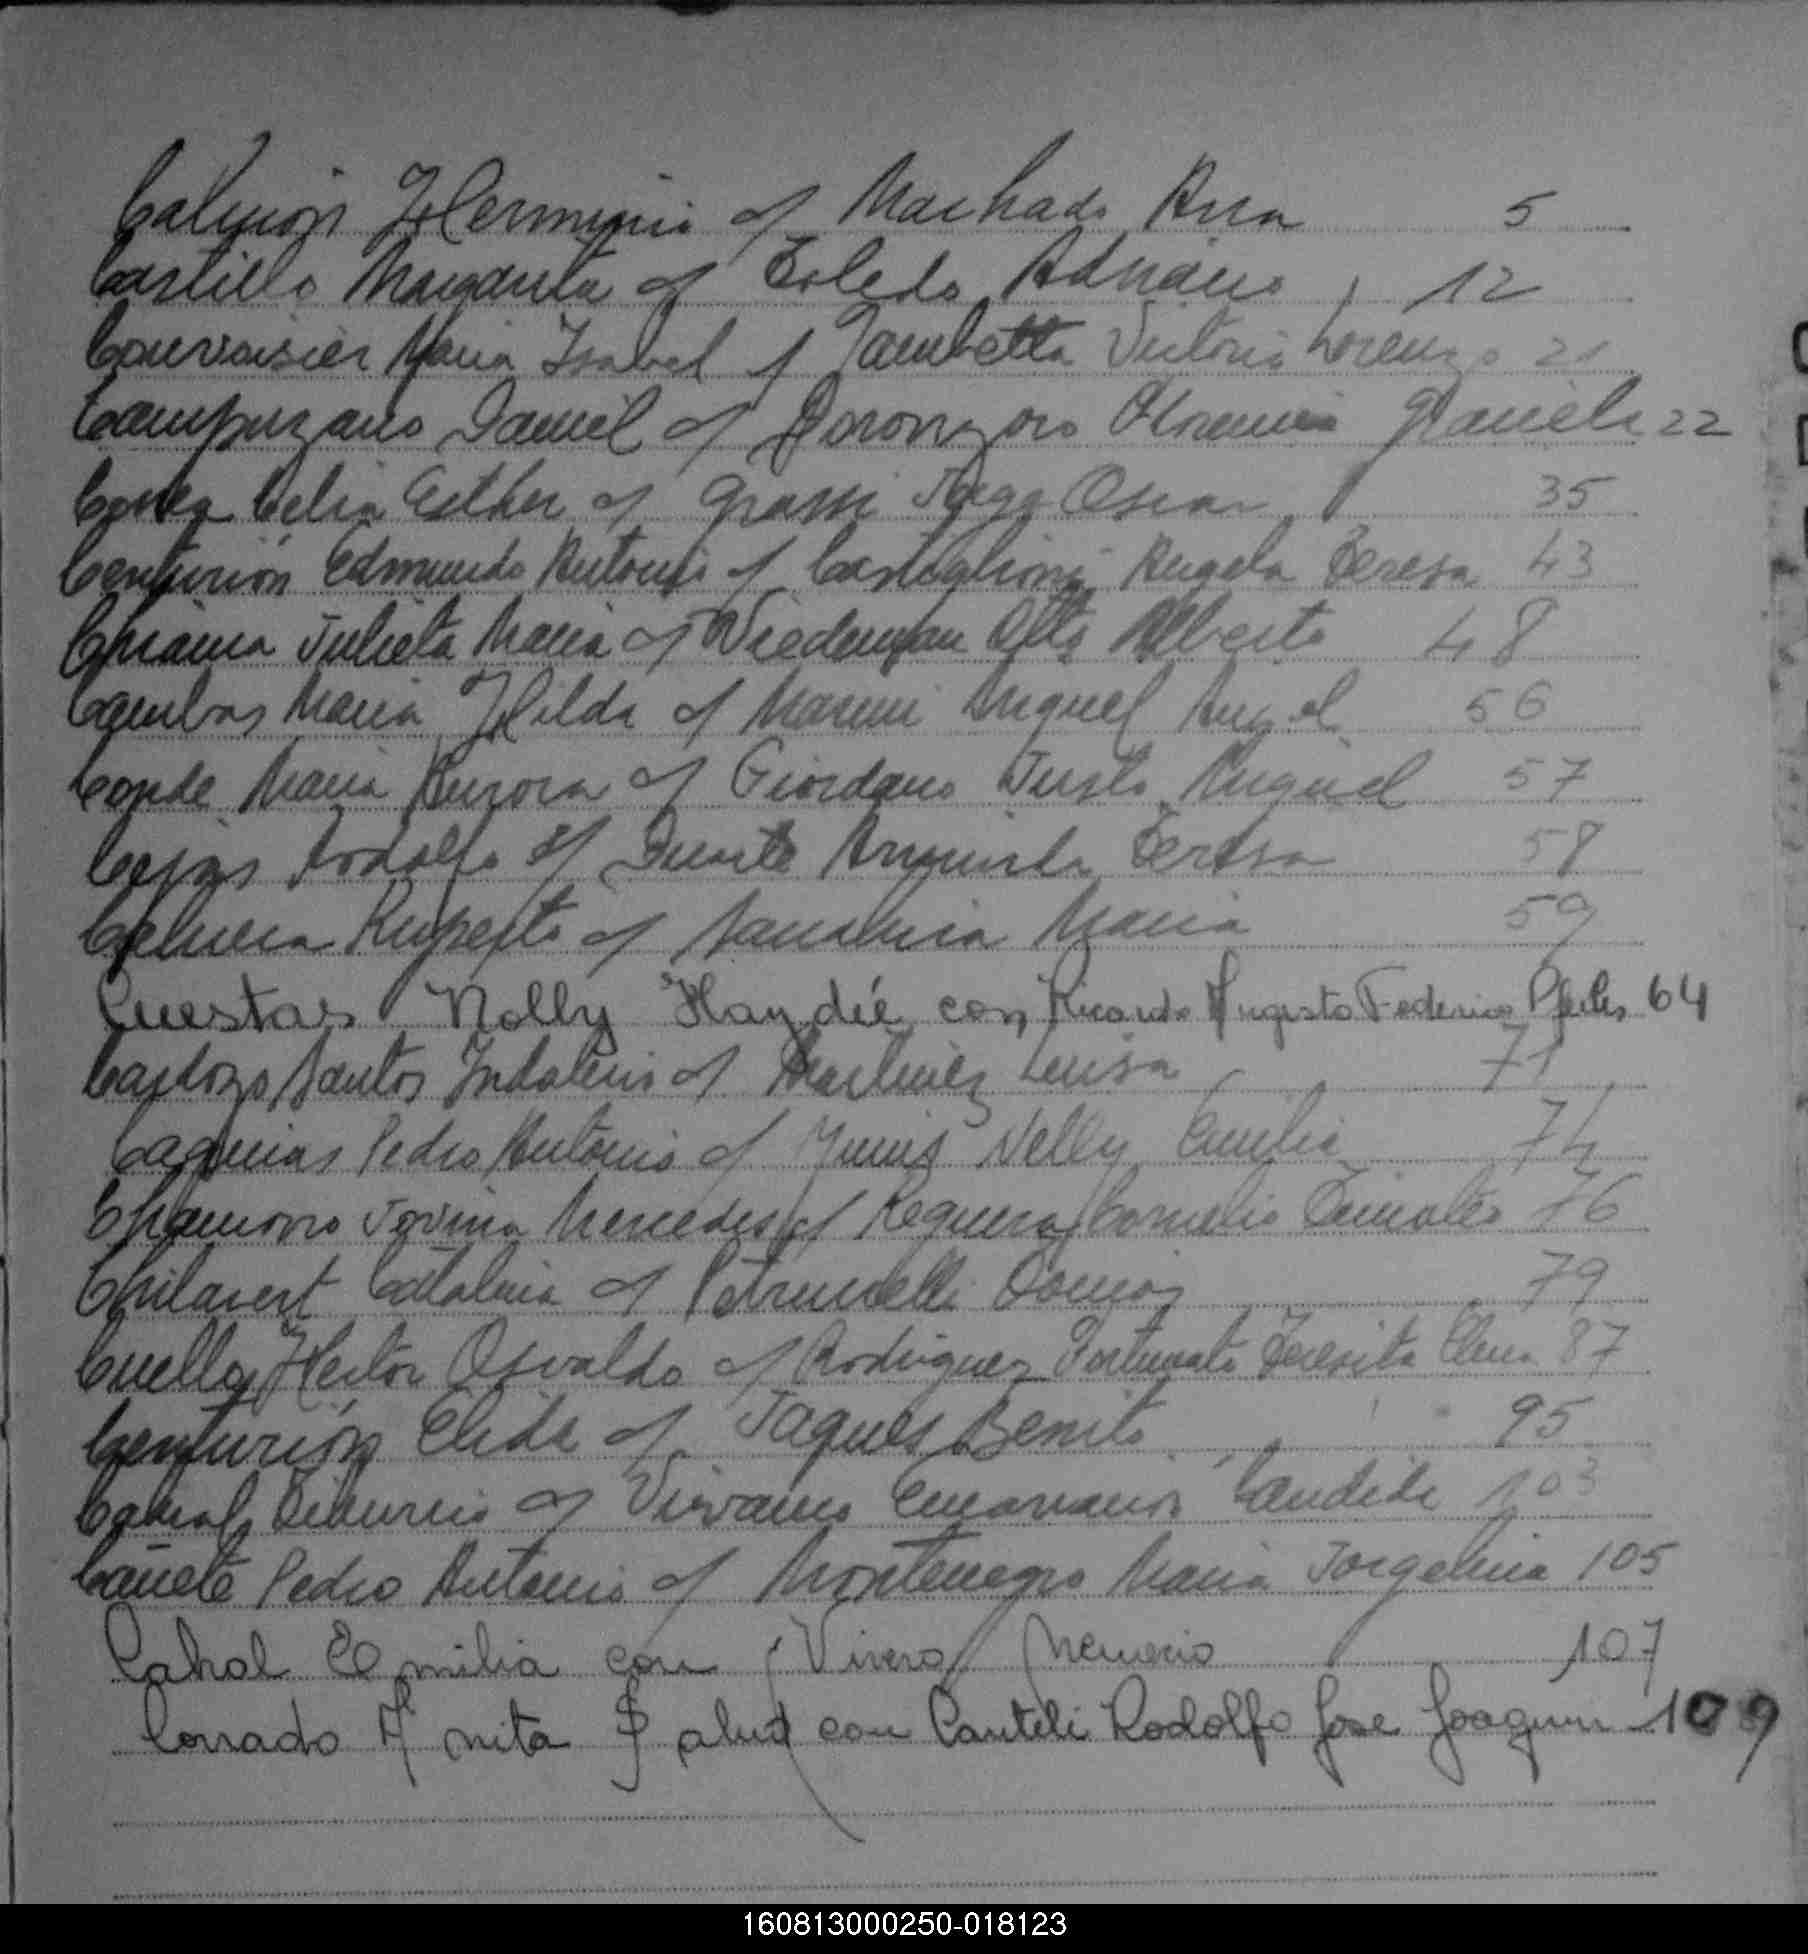 Herminio c/ Machado Ana 5
Castillo Margarita c/ Toledo Adriano 12
Courvoisier Maria Isabel c/ Gambetta Victorio Lorenzo 21
Campuzano Daniel c/ Doronzoro Graciela 22
Celia Esther c/ Grassi Jorge Oscar 35
Centurión Edmundo Antonio c/ Castiglioni Angela Teresa 43
Julieta Maria c/ Wiedeman Otto Alberto 48
Cambas Maria Hilda c/ Marini Miguel Angel 56
Conde Maria Aurora c/ Giordano Justo Miguel 57
Cejas Rodolfo c/ Duarte Arminda Teresa 58
Ruperto c/ Maria 59
Cuestas Nolly Haydée con Ricardo Augusto Federico 64
Cardozo Santos Indalecio c/ Martinez Luisa 71
Pedro Antonio c/ Nelly Emilia 74
Chamorro Jovina Mercedes c/ Reguera Cornelio 76
Chilavert Catalina c/ Petruccelli 79
Cuello Hector Osvaldo c/ Rodriguez Fortunato Teresita Elena 87
Centurión Elida c/ Jaques Benito 95
Cabral Tiburcio c/ Encarnación Candida 103
Cañete Pedro Antonio c/ Montenegro Maria Jorgelina 105
Cabral Emilia con Vivero Nemecio 107
Conrado Anita Salud con Canteli Rodolfo Jose Joaquin 109
160813000250-018123